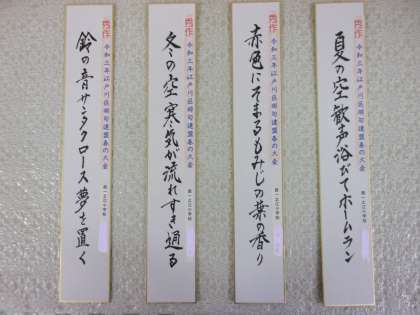 秀作
令和三年江戸川区俳句連盟春の大会
夏の空歓声浴びてホームラン
秀作
令和三年江戸川区俳句連盟春の大会
赤色にそまるもみじの葉の香り
秀作
令和三年江戸川区俳句連盟春の大会
冬の空寒気が流れすき通る
秀作
令和三年江戸川区俳句連盟春の大会
鈴の音サンタクロース夢を置く